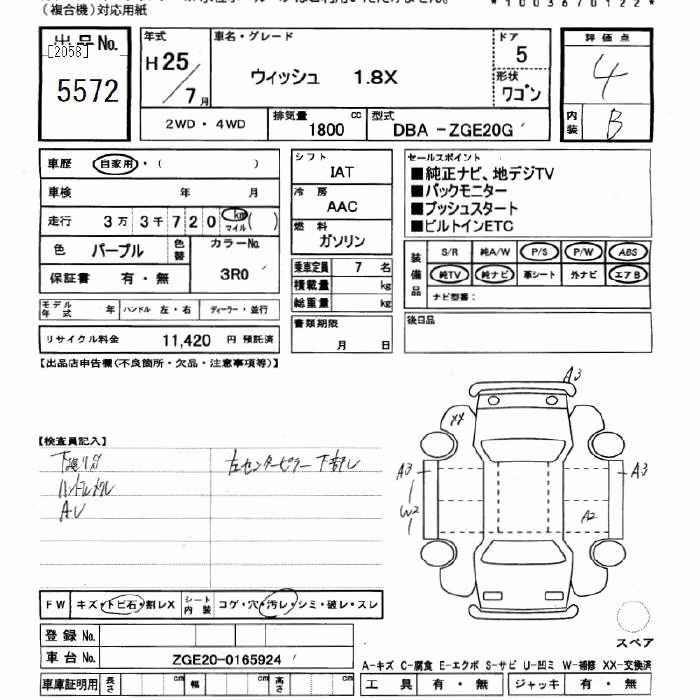 (複合機)対応用紙
*1003670122*
出品No.
[2058]
5572
年式
H25/7月
車名・グレード
ウィッシュ 1.8X
ドア
5
形状
ワゴン
評価点
4
内装
B
2WD・4WD
排気量
1800 cc
型式
DBA -ZGE20G
車歴 自家用・( )
車検 年 月
走行 3万3千720 km マイル( )
色 パープル 色替
カラーNo.
3R0
保証書 有・無
モデル年式 年 ハンドル 左・右 ディーラー・並行
リサイクル料金 11,420 円 預託済
シフト
IAT
冷房
AAC
燃料
ガソリン
乗車定員 7 名
積載量 kg
総重量 kg
書類期限
月 日
セールスポイント
■純正ナビ、地デジTV
■バックモニター
■プッシュスタート
■ビルトインETC
装備品
S/R 純A/W P/S P/W ABS
純TV 純ナビ 革シート 外ナビ エアB
ナビ型番:
後日品
【出品店申告欄(不良箇所・欠品・注意事項等)】
【検査員記入】
下廻りサ
左センターピラー下部し
A3
XX
A3
W2
A3
A2
スペア
FW キズ・トビ石・割レX
シート内装 コゲ・穴・汚レ・シミ・破レ・スレ
登録No.
車台No. ZGE20-0165924
車庫証明用 長さ cm 幅 cm 高さ cm
A-キズ C-腐食 E-エクボ S-サビ U-凹ミ W-補修 XX-交換済
工具 有・無 ジャッキ 有・無